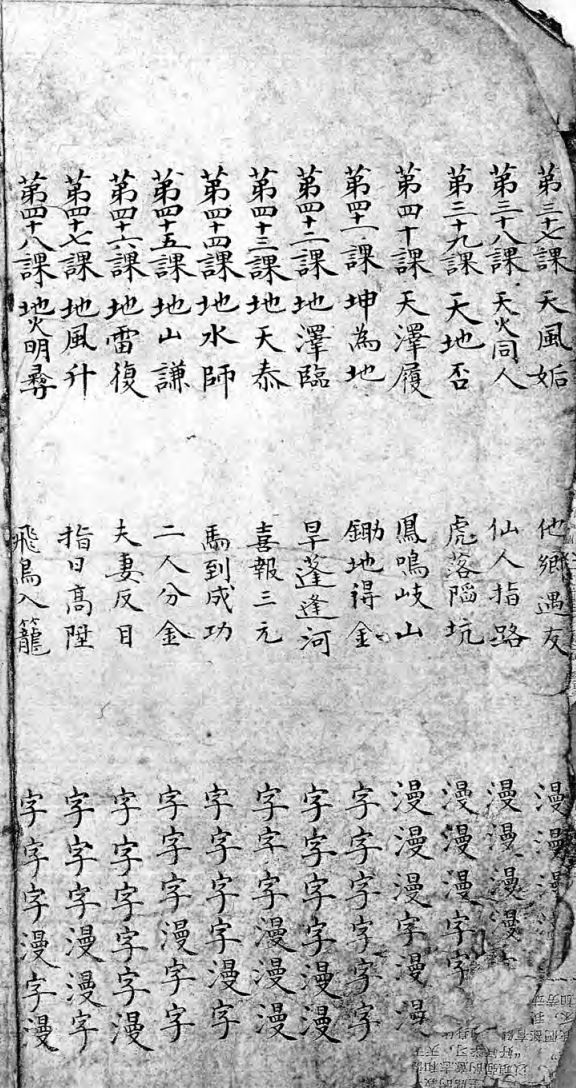 第三十七課 天風姤 他鄉遇友 漫漫漫
第三十八課 天火同人 仙人指路 漫漫漫漫
第三十九課 天地否 虎落陷坑 漫漫漫字字
第四十課 天澤履 鳳鳴岐山 漫漫漫字漫漫
第四十一課 坤為地 鋤地得金 字字字字字字
第四十二課 地澤臨 旱蓬逢河 字字字字漫漫
第四十三課 地天泰 喜報三元 字字字漫漫漫
第四十四課 地水師 馬到成功 字字字字漫字
第四十五課 地山謙 二人分金 字字字漫字字
第四十六課 地雷復 夫妻反目 字字字字字漫
第四十七課 地風升 指日高陞 字字字漫漫字
第四十八課 地火明彝 飛鳥入籠 字字字漫字漫